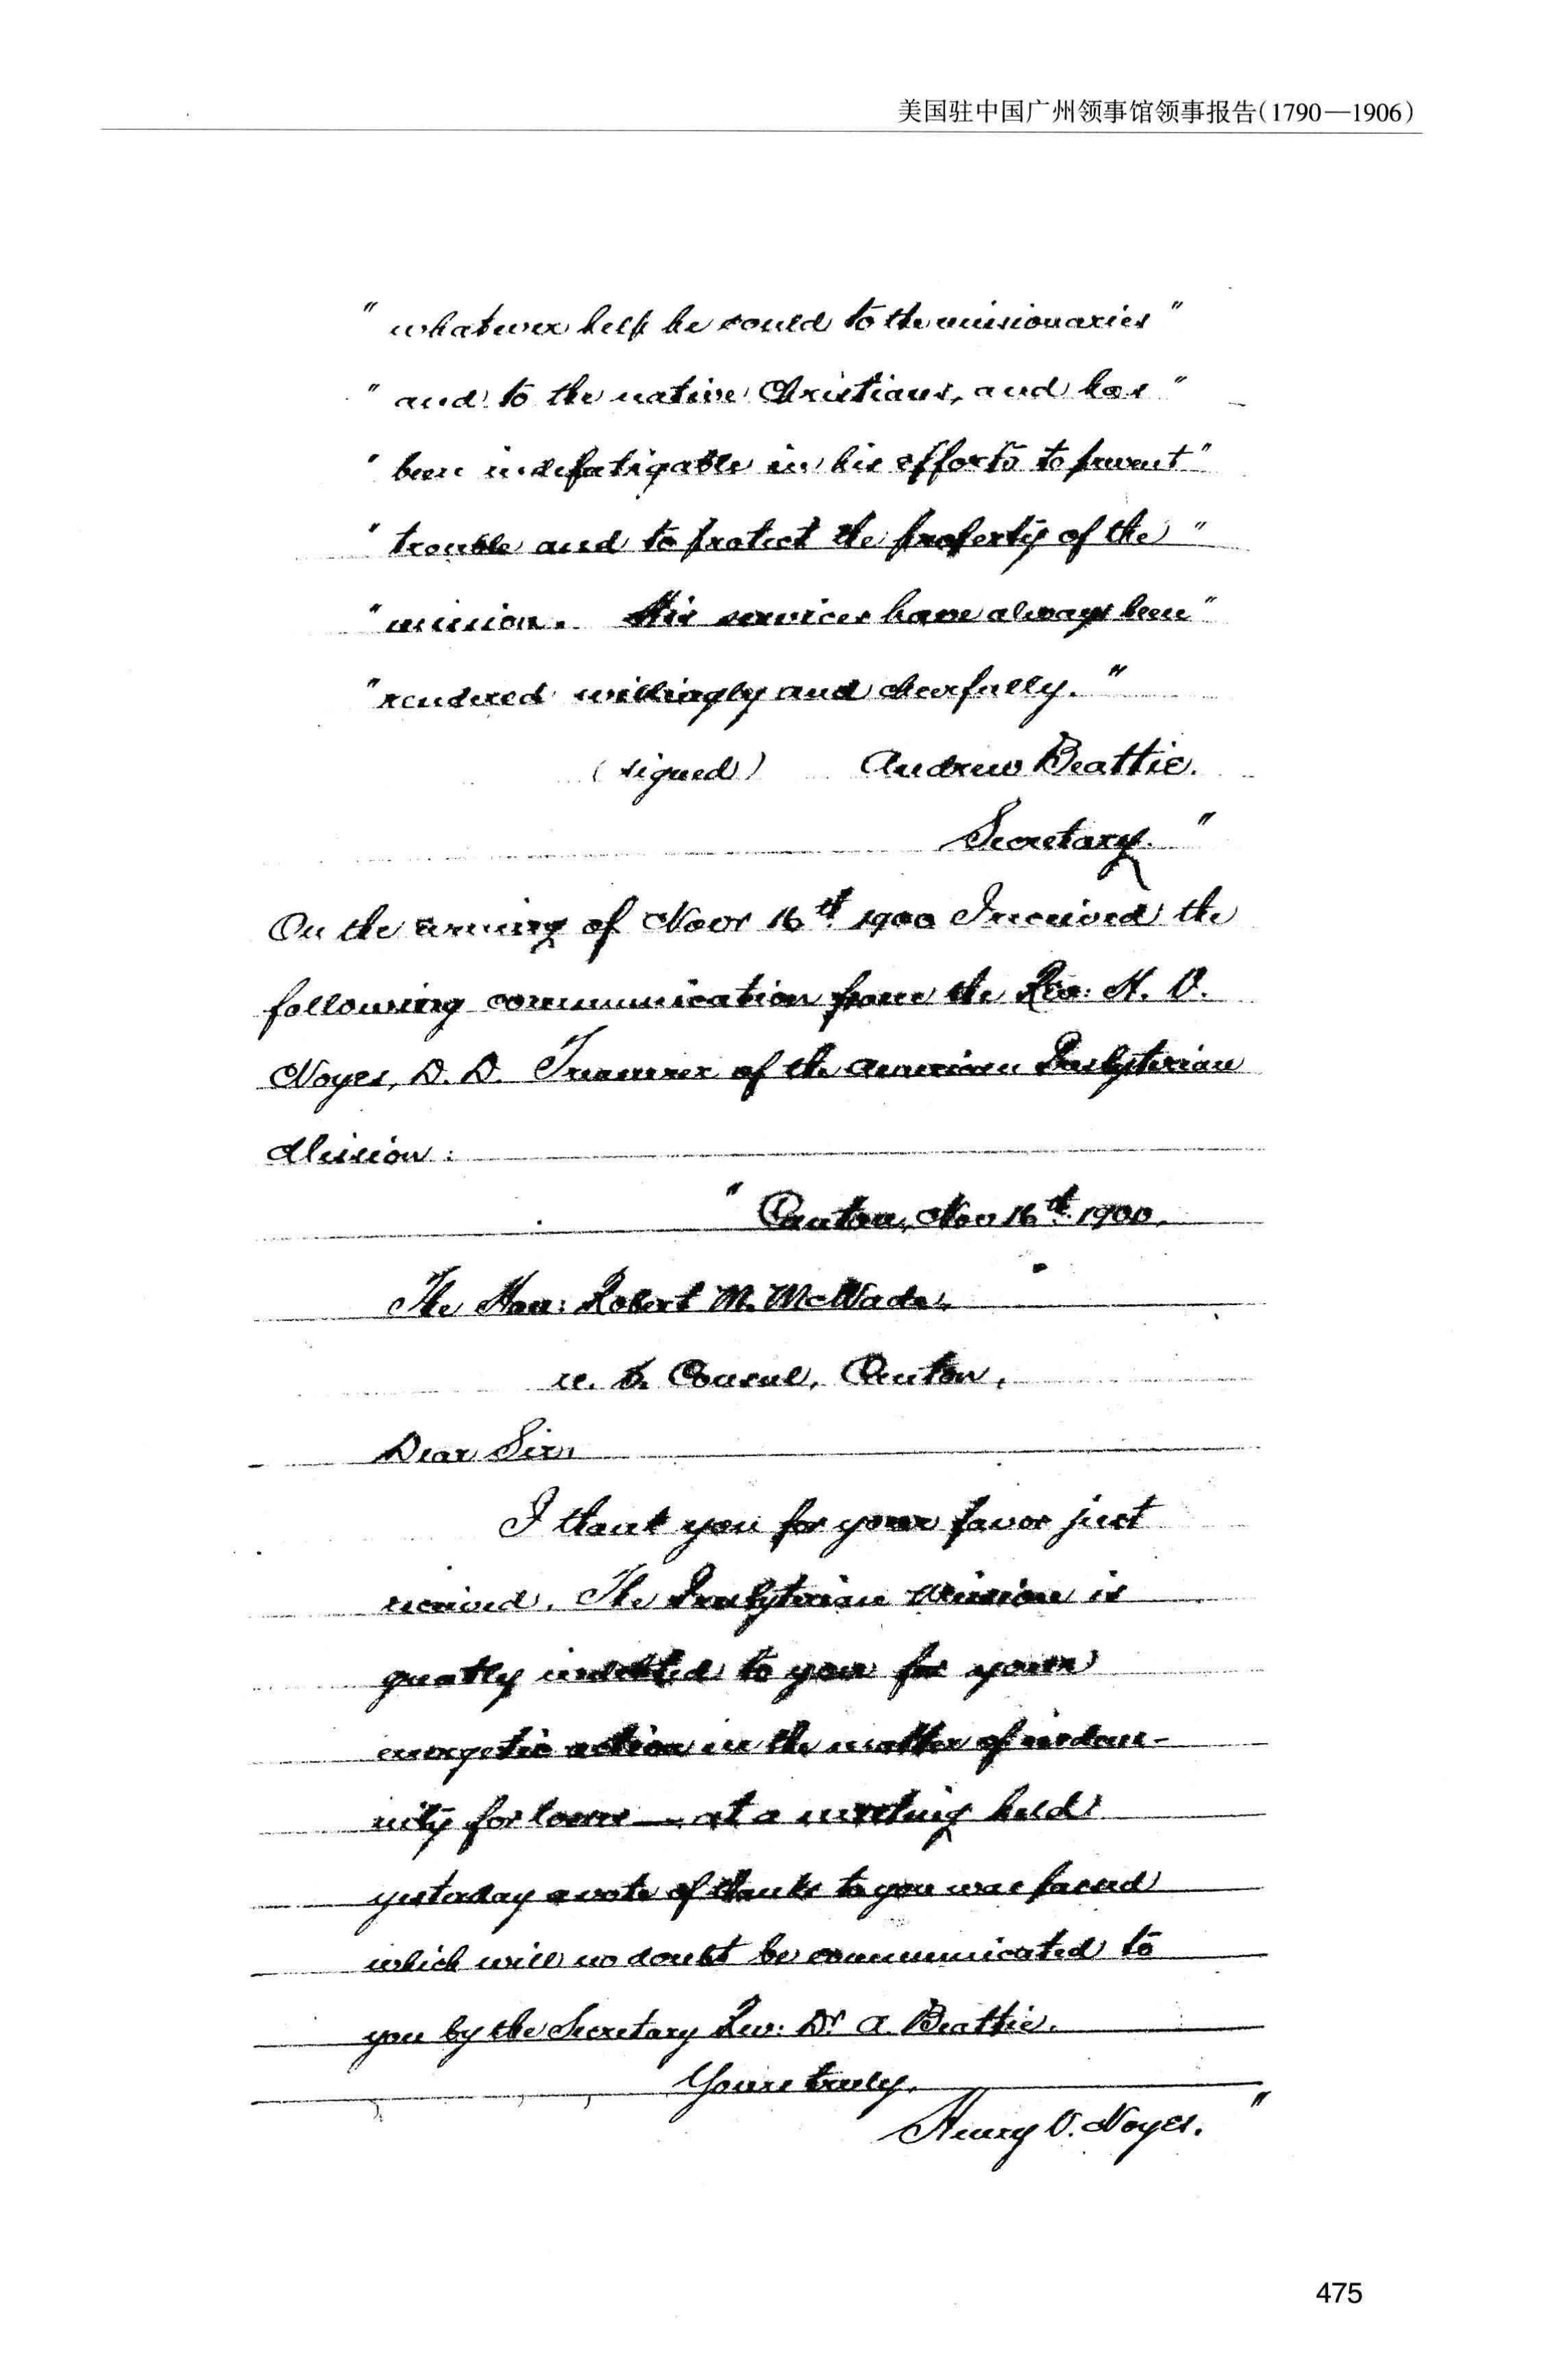 美国驻中国广州领事馆领事报告(1790—1906)
" whatever help he could to the missionaries "
" and to the native Christians, and has "
" been indefatigable in his efforts to prevent "
" trouble and to protect the property of the "
" mission. His services have always been "
" rendered willingly and cheerfully. "
(signed) Andrew Beattie.
Secretary. "
On the evening of Novr 16th 1900 I received the
following communication from the Rev: H. V.
Noyes, D. D. Treasurer of the American Presbyterian
Mission:
" Canton, Nov 16th 1900.
The Hon: Robert M. McWade,
U. S. Consul, Canton,
Dear Sir,
I thank you for your favor just
received. The Presbyterian Mission is
greatly indebted to you for your
energetic action in the matter of indem-
nity for losses — at a meeting held
yesterday a vote of thanks to you was passed
which will no doubt be communicated to
you by the Secretary Rev: Dr A. Beattie.
Yours truly,
Henry V. Noyes. "
475